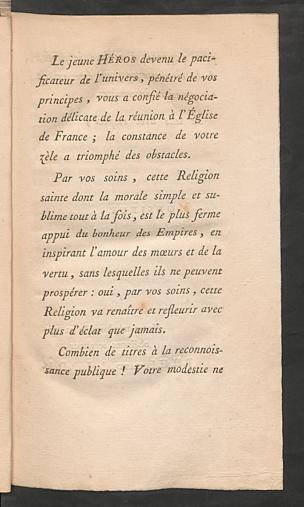 Le jeune HÉROS devenu le paci-
ficateur de l'univers, pénétré de vos
principes, vous a confié la négocia-
tion délicate de la réunion à l'Église
de France; la constance de votre
zèle a triomphé des obstacles.
Par vos soins, cette Religion
sainte dont la morale simple et su-
blime tout à la fois, est le plus ferme
appui du bonheur des Empires, en
inspirant l'amour des mœurs et de la
vertu, sans lesquelles ils ne peuvent
prospérer: oui, par vos soins, cette
Religion va renaître et refleurir avec
plus d'éclat que jamais.
Combien de titres à la reconnois-
sance publique! Votre modestie ne